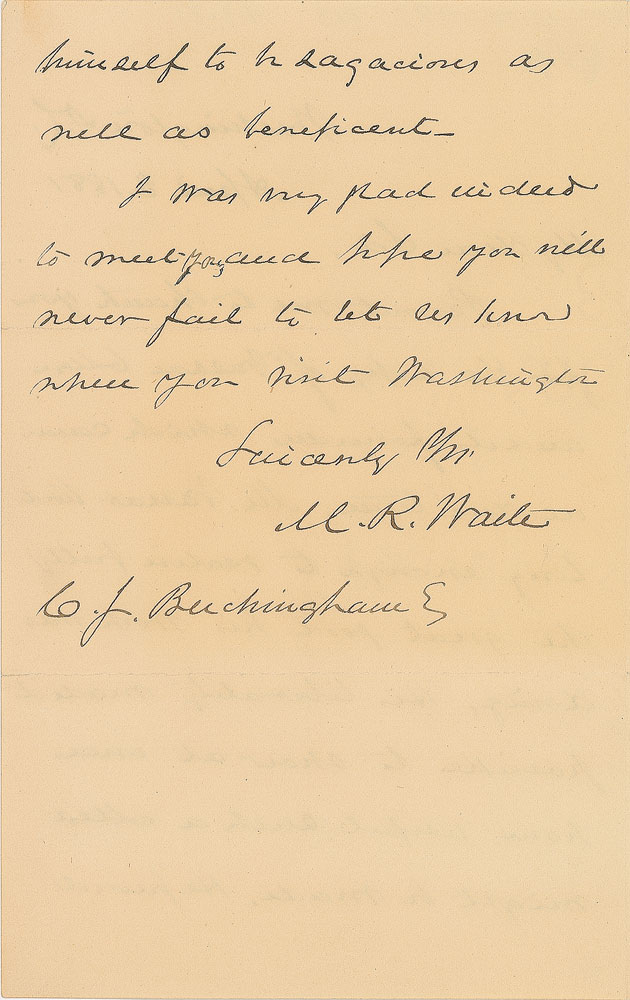 himself to be sagacious as
well as beneficent—
I was very glad indeed
to meet you, and hope you will
never fail to let us know
when you visit Washington
Sincerely Yrs
M. R. Waite
C. J. Buckingham Esq